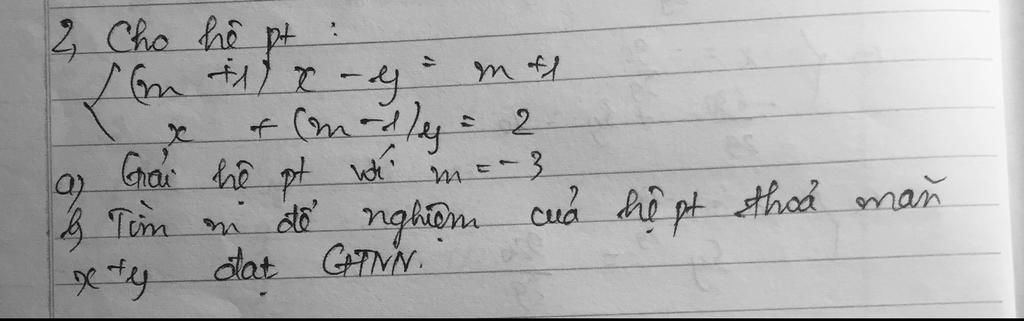 2, Cho hệ pt :
(m +1) x - y = m +1
x + (m -1)y = 2
a) Giải hệ pt với m = -3
b, Tìm m để nghiệm cuả hệ pt thoả mãn
x + y đạt GTNN.